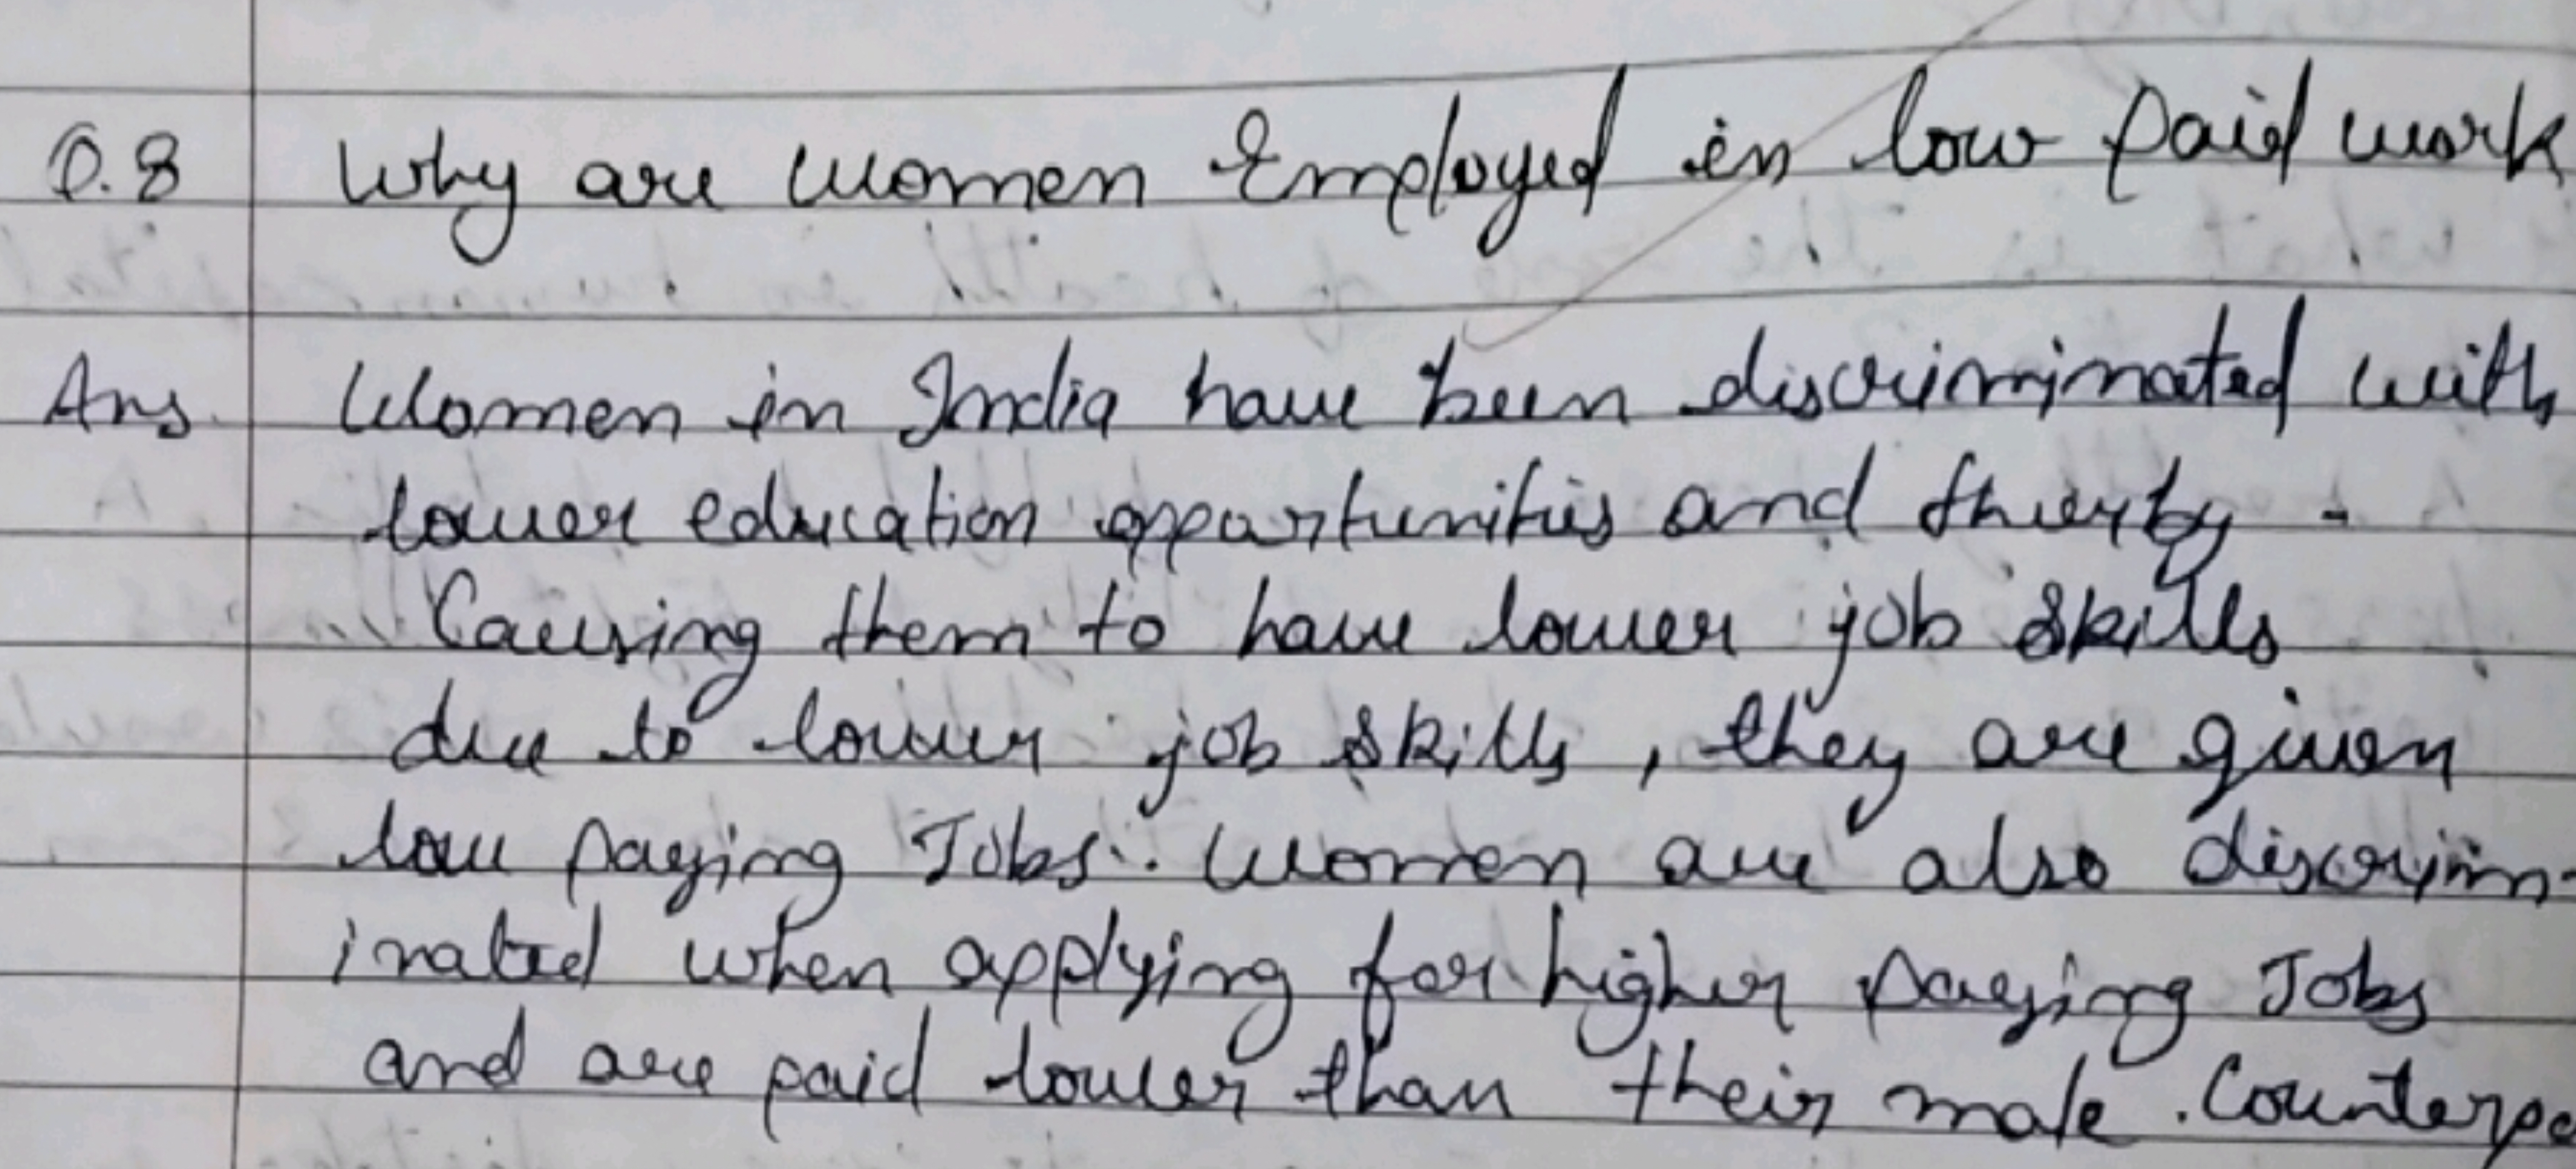 Q.8 Why are women Employed in low paid work
Ans. Women in India have been discriminated with
lower education opportunities and therby -
Causing them to have lower job skills
due to lower job skills, they are given
low paying Jobs. Women are also discrim-
inated when applying for higher paying Jobs
and are paid lower than their male. Counterpa